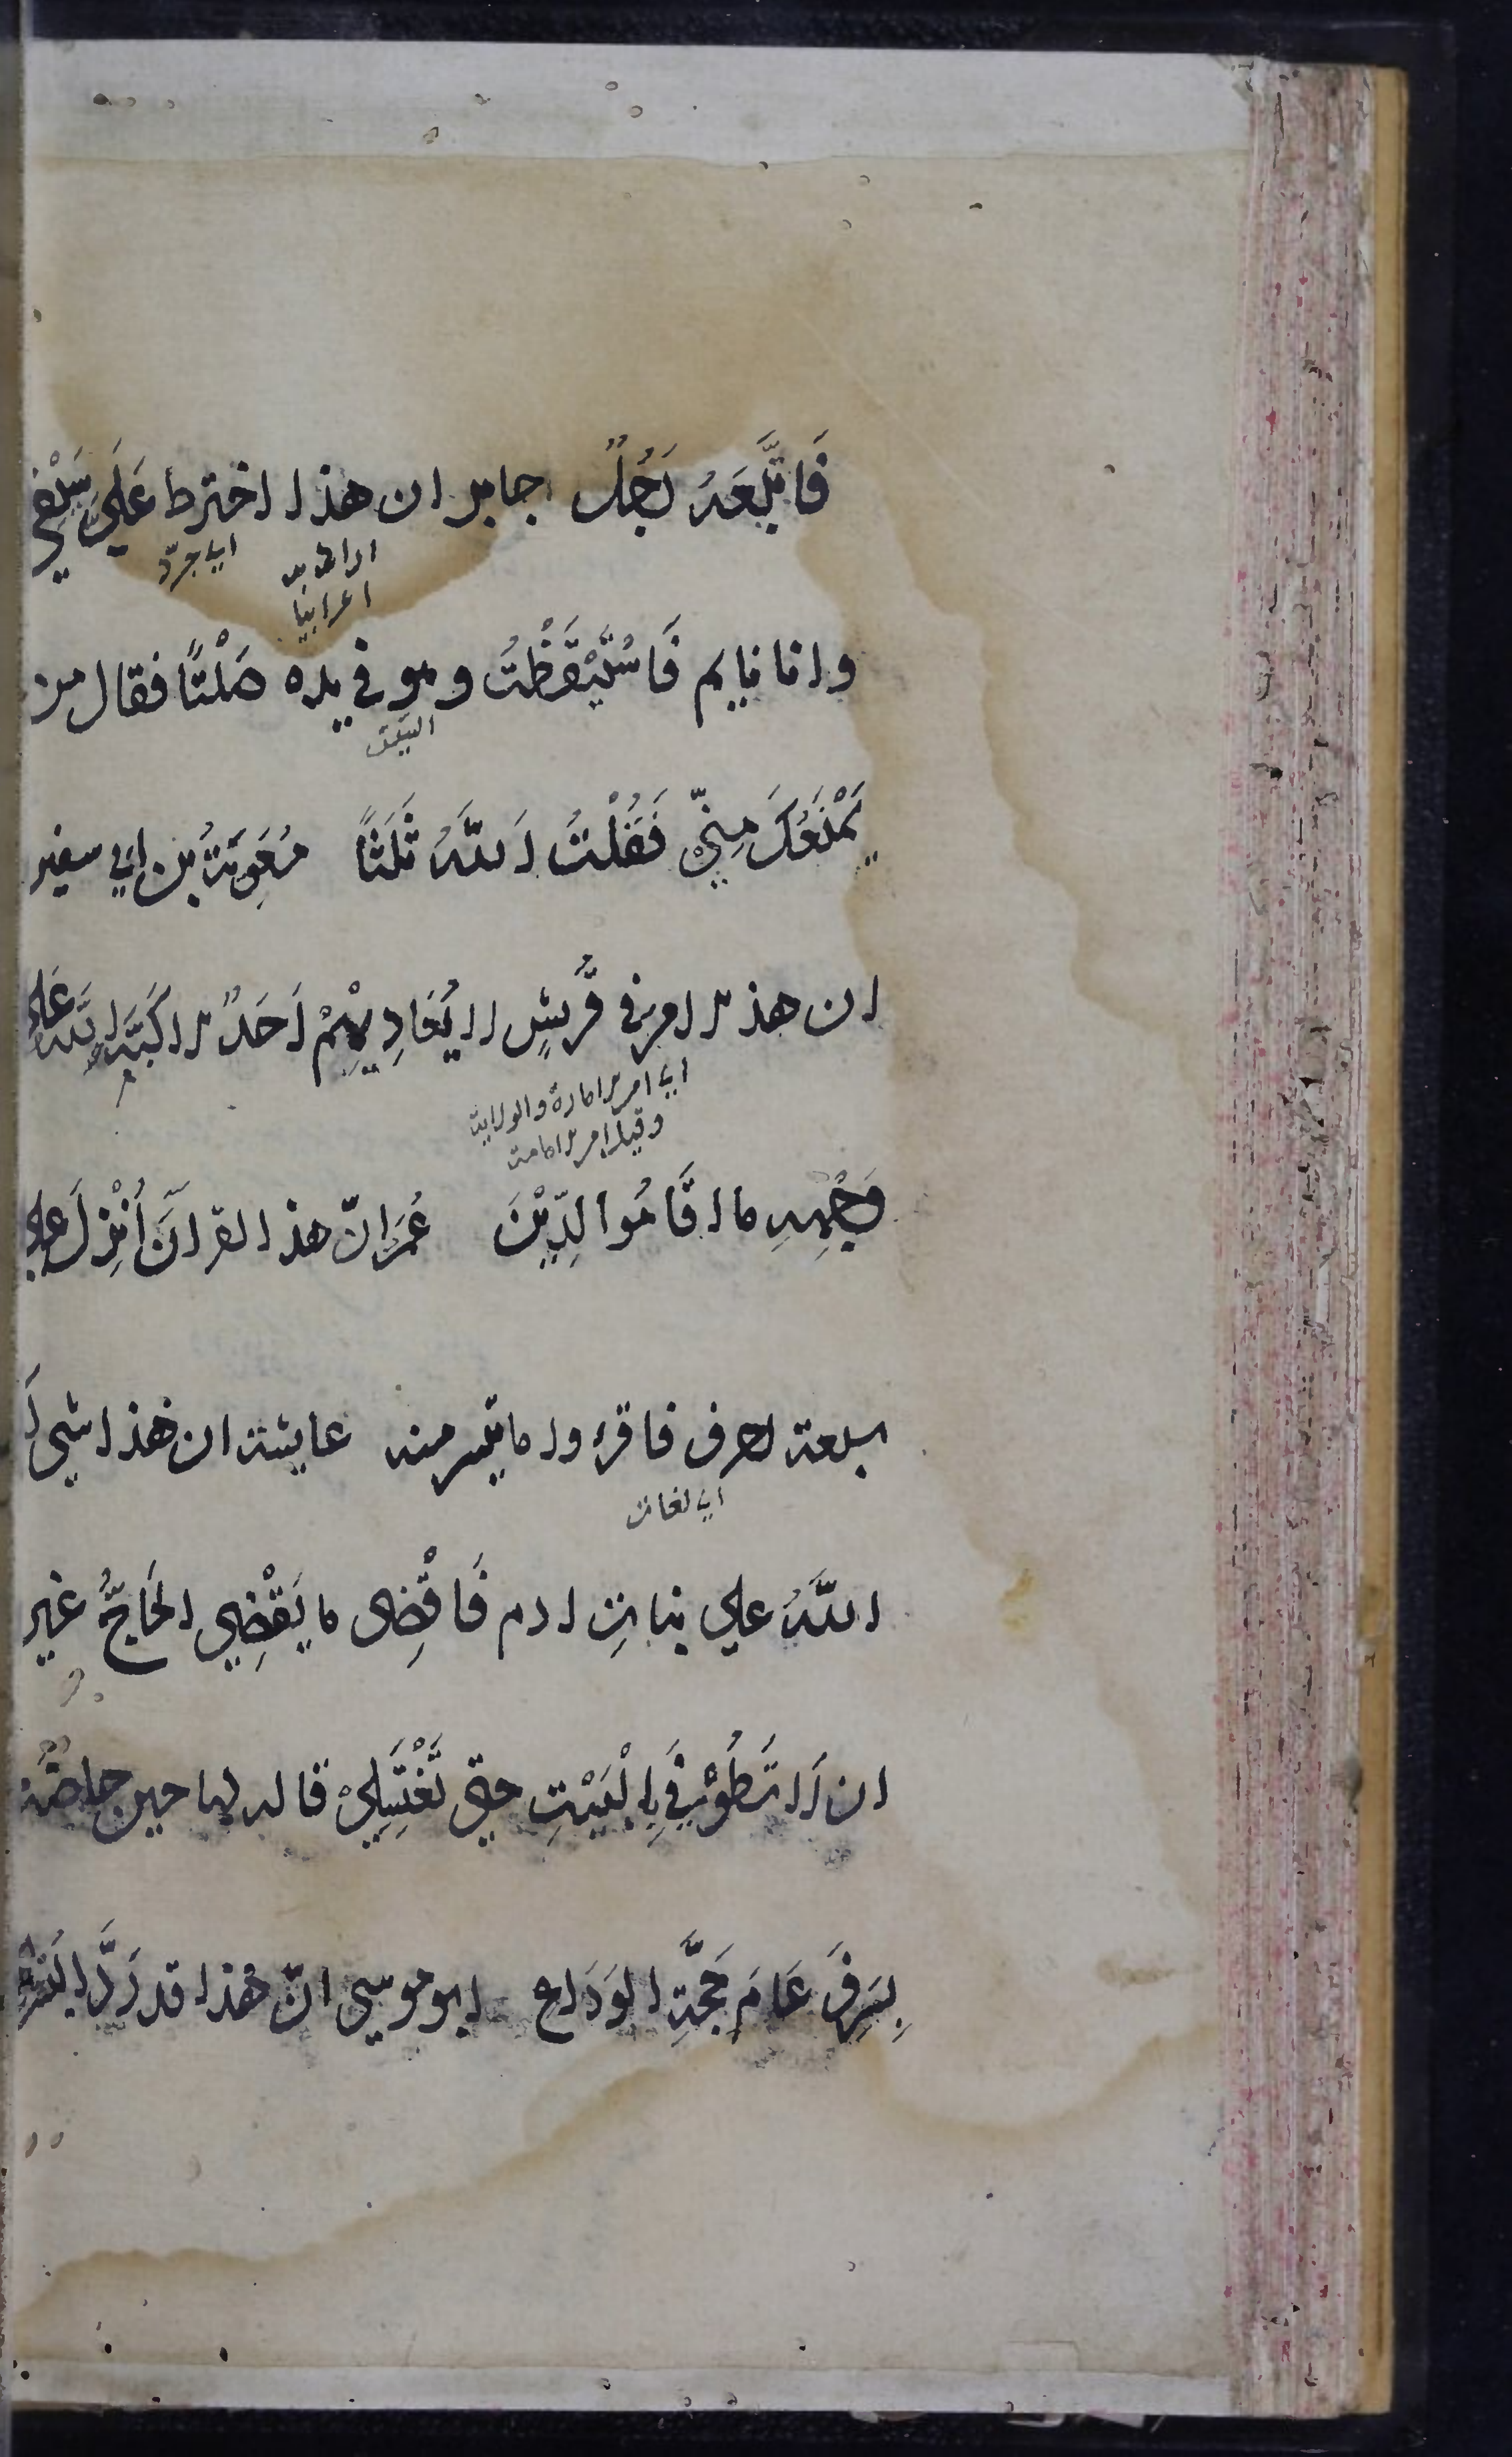 فَاتَّبَعَهُ رَجُلٌ جابر ان هذا اخترط عَلَيَّ سَيْفِي
اي جرّد
اراد به
اعرابيّا
وانا نايم فَاسْتَيْقَظْتُ وهو في يده صَلْتًا فقال من
السَيف
يَمْنَعُكَ مِنِّي فَقُلْتُ اَللَّهُ ثَلَثًا مُعَوِيَةُ بن ابي سفين
ان هذ الامر في قُرَيْشٍ لا يُعَادِيهِمْ اَحَدٌ الا كَبَّهُ اللَّهُ عَلَى
اي امر الامارة والولاية
وقيل امر الامامة
وَجْهِهِ ما اقَامُوا الدِّيْنَ عُمَرَ انّ هذا القرآنَ اُنْزِلَ علي
سبعة احرف فاقرءوا ما تيسر منه عايشة ان هذا شي
اي لغات
اللَّهُ علي بناتِ ادم فَاقْضِى ما يَقْضِي الحَاجُّ غير
ان لَا تَطُوْفِي بِالْبَيْتِ حتي تَغْتَسِلِيْ قاله لها حين حاضَتْ
بِسَرِفَ عَامَ حَجَّةِ الوَدَاع ابو موسي انّ هذا قد رَدَّ البُشْرى